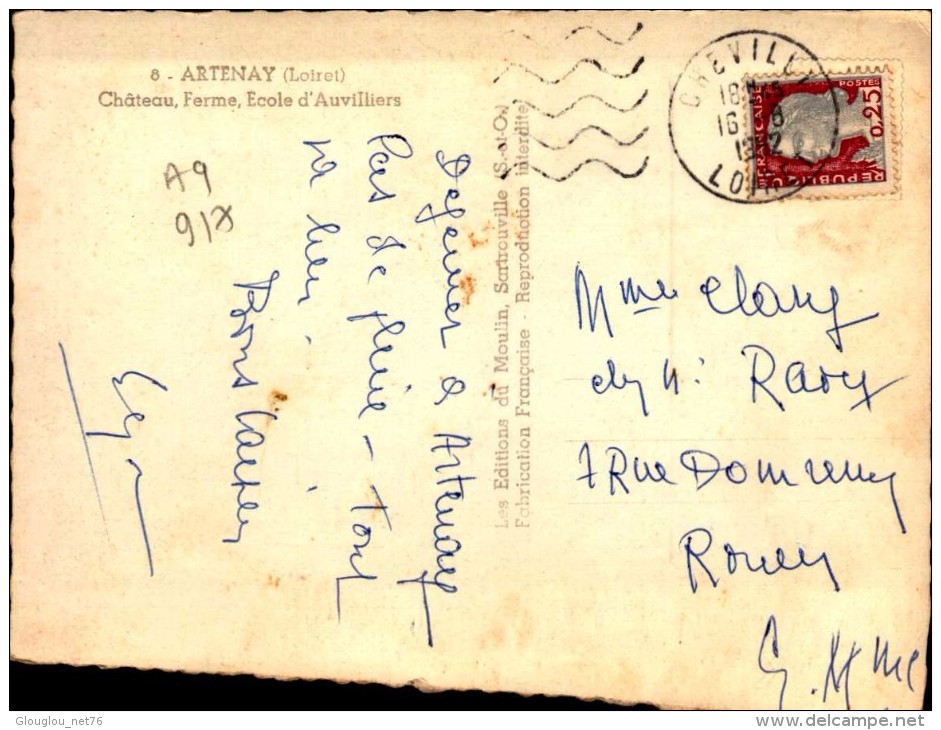 8 - ARTENAY (Loiret)
Château, Ferme, Ecole d'Auvilliers
A9
917
Déjeuner à Artenay
Pas de pluie - Tout
va bien.
Bons baisers
Les Editions du Moulin, Sartrouville (S.-et-O.)
Fabrication Française - Reproduction interdite
CHEVILLY
18H
16 - 8
LOIRET
RÉPUBLIQUE FRANÇAISE
POSTES
0,25
Mme
7 Rue Domremy
Rouen
S. Mme
Glouglou_net76
delcampe.net